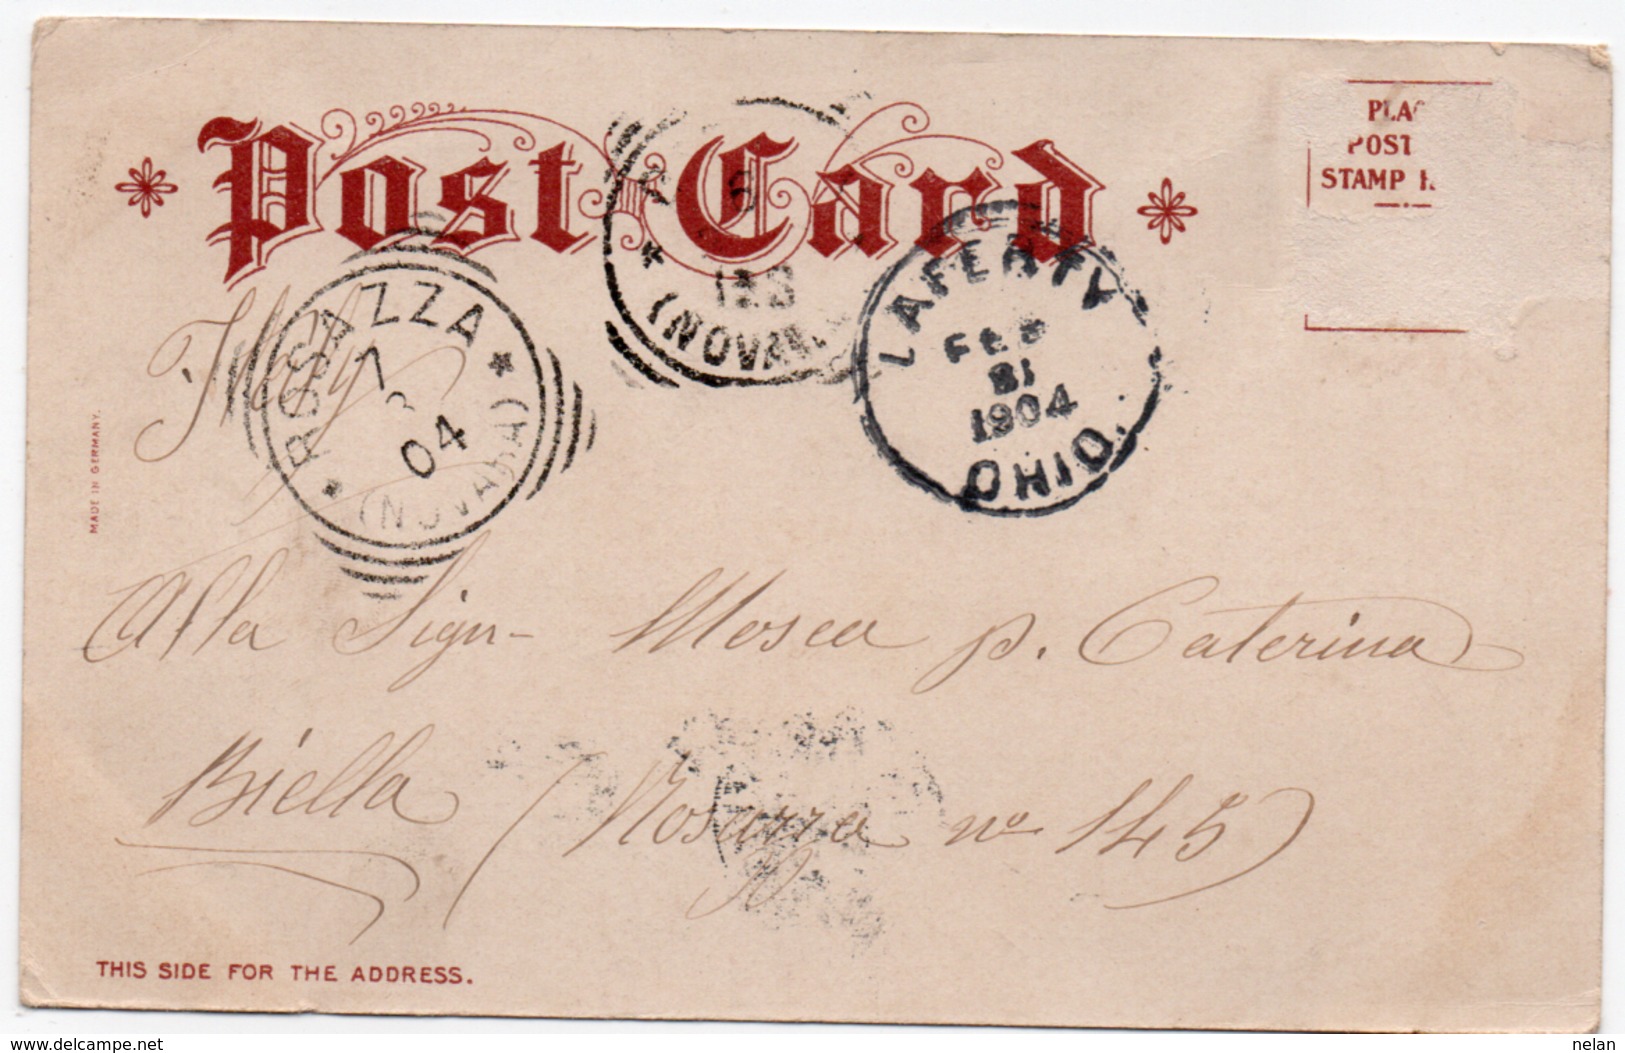 Post Card
POST
STAMP
LAFERTY
FEB
1904
OHIO.
(NOVA
ROSAZZA
7
04
(NOVARA)
Italy
MADE IN GERMANY.
Alla Sign- Mosca p. Caterina
Biella (Rosazza no 145)
THIS SIDE FOR THE ADDRESS.
www.delcampe.net
nelan